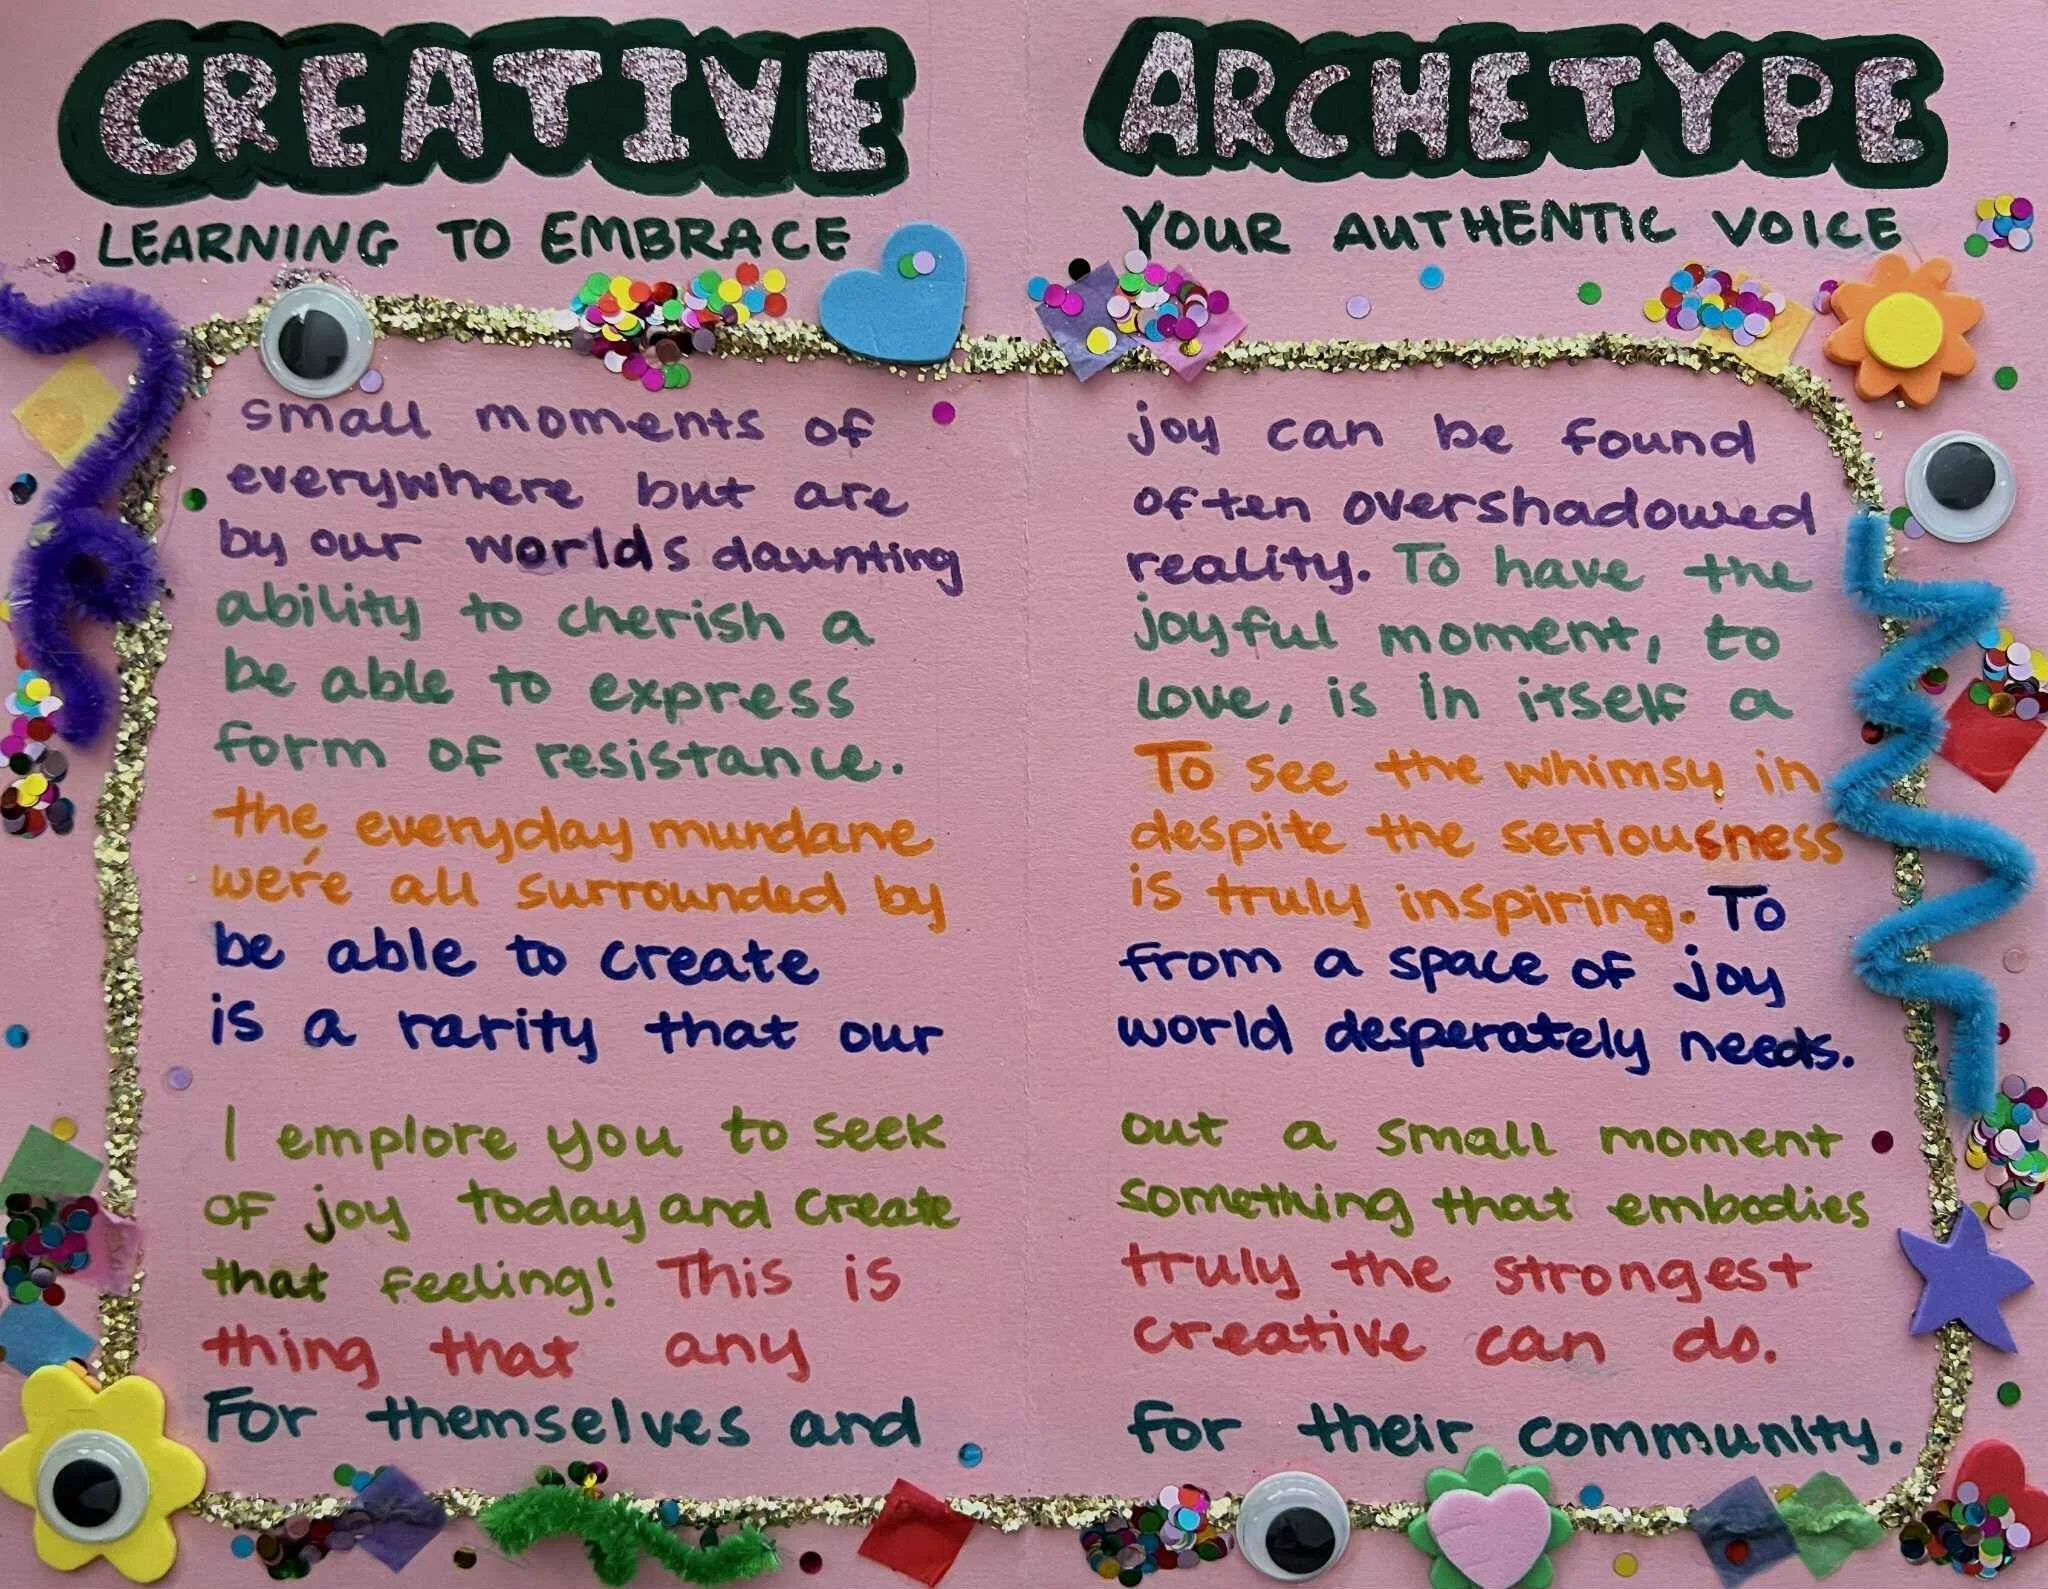 CREATIVE ARCHETYPE
LEARNING TO EMBRACE YOUR AUTHENTIC VOICE
small moments of joy can be found
everywhere but are often overshadowed
by our worlds daunting reality. To have the
ability to cherish a joyful moment, to
be able to express love, is in itself a
form of resistance. To see the whimsy in
the everyday mundane despite the seriousness
we're all surrounded by is truly inspiring. To
be able to create from a space of joy
is a rarity that our world desperately needs.
I emplore you to seek out a small moment
of joy today and create something that embodies
that feeling! This is truly the strongest
thing that any creative can do.
For themselves and for their community.